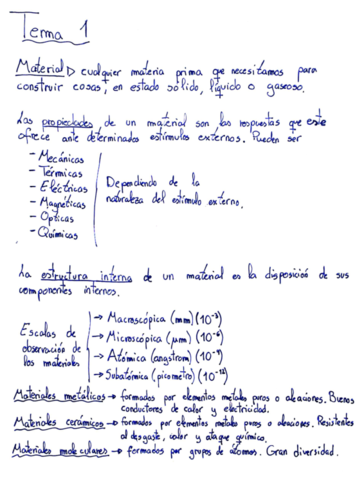 Tema 1
Material ▷ cualquier materia prima que necesitamos para
construir cosas, en estado sólido, líquido o gaseoso.
Las propiedades de un material son las respuestas que este
ofrece ante determinados estímulos externos. Pueden ser
- Mecánicas
- Térmicas
- Eléctricas
- Magnéticas
- Ópticas
- Químicas
Dependiendo de la
naturaleza del estímulo externo.
La estructura interna de un material es la disposición de sus
componentes internos.
Escalas de
observación de
los materiales
→ Macroscópica (mm) (10⁻³)
→ Microscópica (μm) (10⁻⁶)
→ Atómica (angstrom) (10⁻⁹)
→ Subatómica (picometro) (10⁻¹²)
Materiales metálicos → formados por elementos metales puros o aleaciones. Buenos
conductores de calor y electricidad.
Materiales cerámicos → formados por elementos metales puros o aleaciones. Resistentes
al desgaste, calor y ataque químico.
Materiales moleculares → formados por grupos de átomos. Gran diversidad.